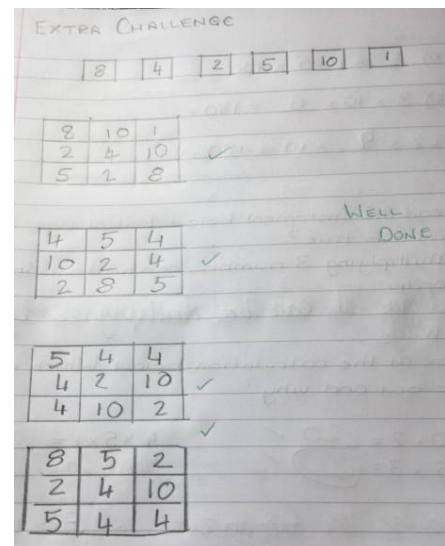 EXTRA CHALLENGE
8 4 2 5 10 1
8 10 1
2 4 10 ✓
5 2 8
WELL
DONE
4 5 4
10 2 4 ✓
2 8 5
5 4 4
4 2 10 ✓
4 10 2
✓
8 5 2
2 4 10
5 4 4